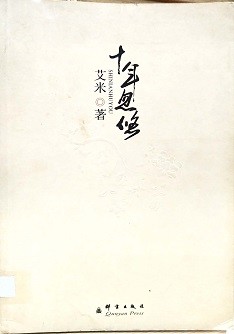 十年忽悠
SHINIANHUYOU
艾米◎著
群言出版社
Qunyan Press